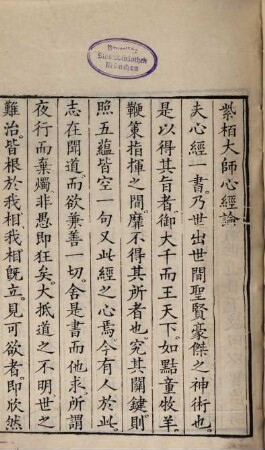 紫栢大師心經論
夫心經一書乃世出世間聖賢豪傑之神術也
是以得其旨者御大千而王天下如點童牧羊
鞭策指揮之間靡不得其所者也究其關鍵則
照五蘊皆空一句又此經之心焉今有人於此
志在聞道而欲兼善一切舍是書而他求所謂
夜行而棄燭非愚即狂矣大抵道之不明世之
難治皆根於我相我相既立見可欲者即欣然
Staatsbibliothek
München